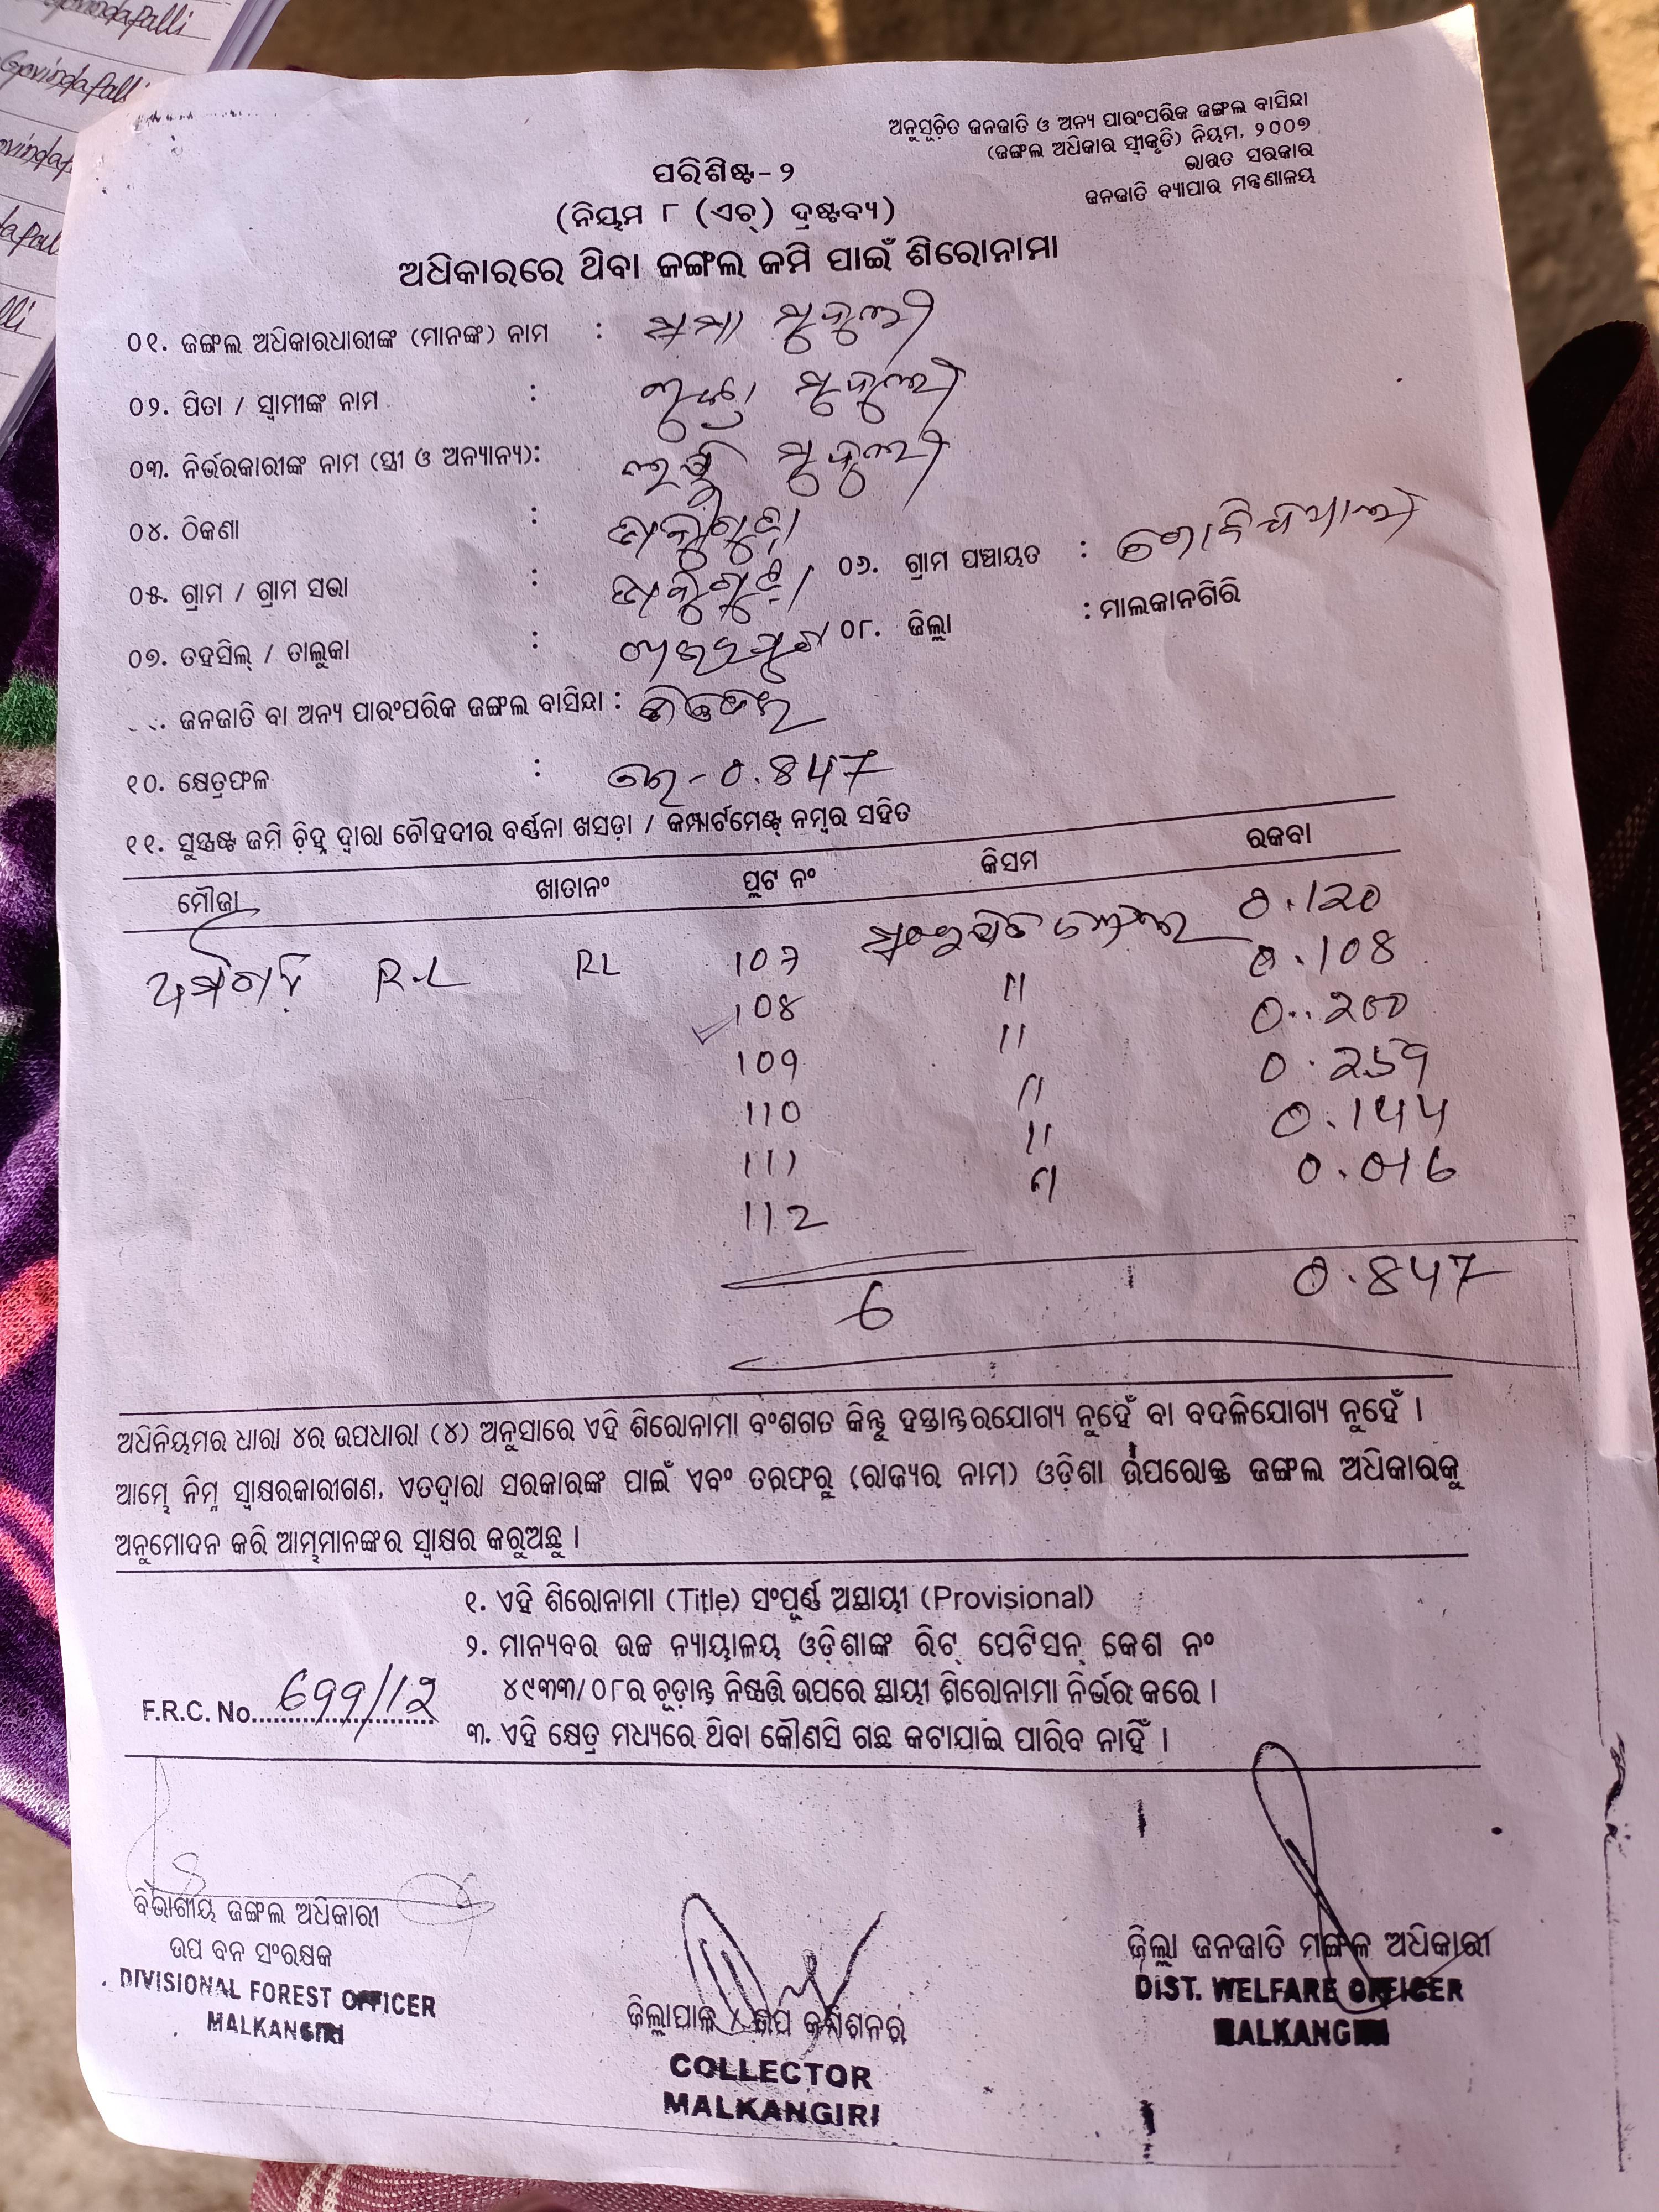 Govindapalli
Govindapalli
ଅନୁସୂଚିତ ଜନଜାତି ଓ ଅନ୍ୟ ପାରଂପରିକ ଜଙ୍ଗଲ ବାସିନ୍ଦା
(ଜଙ୍ଗଲ ଅଧିକାର ସ୍ୱୀକୃତି) ନିୟମ, ୨୦୦୭
ଭାରତ ସରକାର
ଜନଜାତି ବ୍ୟାପାର ମନ୍ତ୍ରଣାଳୟ
ପରିଶିଷ୍ଟ-୨
(ନିୟମ ୮ (ଏଚ୍) ଦ୍ରଷ୍ଟବ୍ୟ)
ଅଧିକାରରେ ଥିବା ଜଙ୍ଗଲ ଜମି ପାଇଁ ଶିରୋନାମା
୦୧. ଜଙ୍ଗଲ ଅଧିକାରଧାରୀଙ୍କ (ମାନଙ୍କ) ନାମ : ମୁଦୁଲି
୦୨. ପିତା / ସ୍ୱାମୀଙ୍କ ନାମ : ମୁଦୁଲି
୦୩. ନିର୍ଭରକାରୀଙ୍କ ନାମ (ସ୍ତ୍ରୀ ଓ ଅନ୍ୟାନ୍ୟ): ମୁଦୁଲି
୦୪. ଠିକଣା :
୦୫. ଗ୍ରାମ / ଗ୍ରାମ ସଭା : ୦୬. ଗ୍ରାମ ପଞ୍ଚାୟତ : ଗୋବିନ୍ଦପାଲି
୦୭. ତହସିଲ୍ / ତାଲୁକା : ୦୮. ଜିଲ୍ଲା : ମାଲକାନଗିରି
ଜନଜାତି ବା ଅନ୍ୟ ପାରଂପରିକ ଜଙ୍ଗଲ ବାସିନ୍ଦା :
୧୦. କ୍ଷେତ୍ରଫଳ : ହେ- 0.847
୧୧. ସୁସ୍ପଷ୍ଟ ଜମି ଚିହ୍ନ ଦ୍ୱାରା ଚୌହଦୀର ବର୍ଣ୍ଣନା ଖସଡ଼ା / କମ୍ପାର୍ଟମେଣ୍ଟ ନମ୍ବର ସହିତ
ମୌଜା ଖାତାନଂ ପ୍ଲଟ ନଂ କିସମ ରକବା
R.L RL 107 0.120
108 " 0.108
109 " 0.200
110 " 0.259
111 " 0.144
112 " 0.016
6 0.847
ଅଧିନିୟମର ଧାରା ୪ର ଉପଧାରା (୪) ଅନୁସାରେ ଏହି ଶିରୋନାମା ବଂଶଗତ କିନ୍ତୁ ହସ୍ତାନ୍ତରଯୋଗ୍ୟ ନୁହେଁ ବା ବଦଳିଯୋଗ୍ୟ ନୁହେଁ ।
ଆମ୍ଭେ ନିମ୍ନ ସ୍ୱାକ୍ଷରକାରୀଗଣ, ଏତଦ୍ୱାରା ସରକାରଙ୍କ ପାଇଁ ଏବଂ ତରଫରୁ (ରାଜ୍ୟର ନାମ) ଓଡ଼ିଶା ଉପରୋକ୍ତ ଜଙ୍ଗଲ ଅଧିକାରକୁ
ଅନୁମୋଦନ କରି ଆମ୍ଭମାନଙ୍କର ସ୍ୱାକ୍ଷର କରୁଅଛୁ ।
୧. ଏହି ଶିରୋନାମା (Title) ସଂପୂର୍ଣ୍ଣ ଅସ୍ଥାୟୀ (Provisional)
୨. ମାନ୍ୟବର ଉଚ୍ଚ ନ୍ୟାୟାଳୟ ଓଡ଼ିଶାଙ୍କ ରିଟ୍ ପେଟିସନ୍ କେଶ ନଂ
୪୯୩୩/୦୮ର ଚୂଡ଼ାନ୍ତ ନିଷ୍ପତ୍ତି ଉପରେ ସ୍ଥାୟୀ ଶିରୋନାମା ନିର୍ଭର କରେ ।
F.R.C. No. 699/12
୩. ଏହି କ୍ଷେତ୍ର ମଧ୍ୟରେ ଥିବା କୌଣସି ଗଛ କଟାଯାଇ ପାରିବ ନାହିଁ ।
ବିଭାଗୀୟ ଜଙ୍ଗଲ ଅଧିକାରୀ
ଉପ ବନ ସଂରକ୍ଷକ
DIVISIONAL FOREST OFFICER
MALKANGIRI
ଜିଲ୍ଲାପାଳ / ଉପ କମିଶନର
COLLECTOR
MALKANGIRI
ଜିଲ୍ଲା ଜନଜାତି ମଙ୍ଗଳ ଅଧିକାରୀ
DIST. WELFARE OFFICER
MALKANGIRI